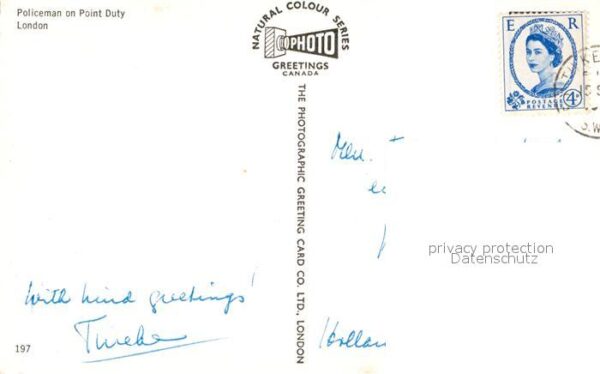 Policeman on Point Duty
London
NATURAL COLOUR SERIES
PHOTO
GREETINGS
CANADA
THE PHOTOGRAPHIC GREETING CARD CO. LTD., LONDON
E R
POSTAGE
REVENUE
4D
S.W.
privacy protection
Datenschutz
With kind greetings!
197